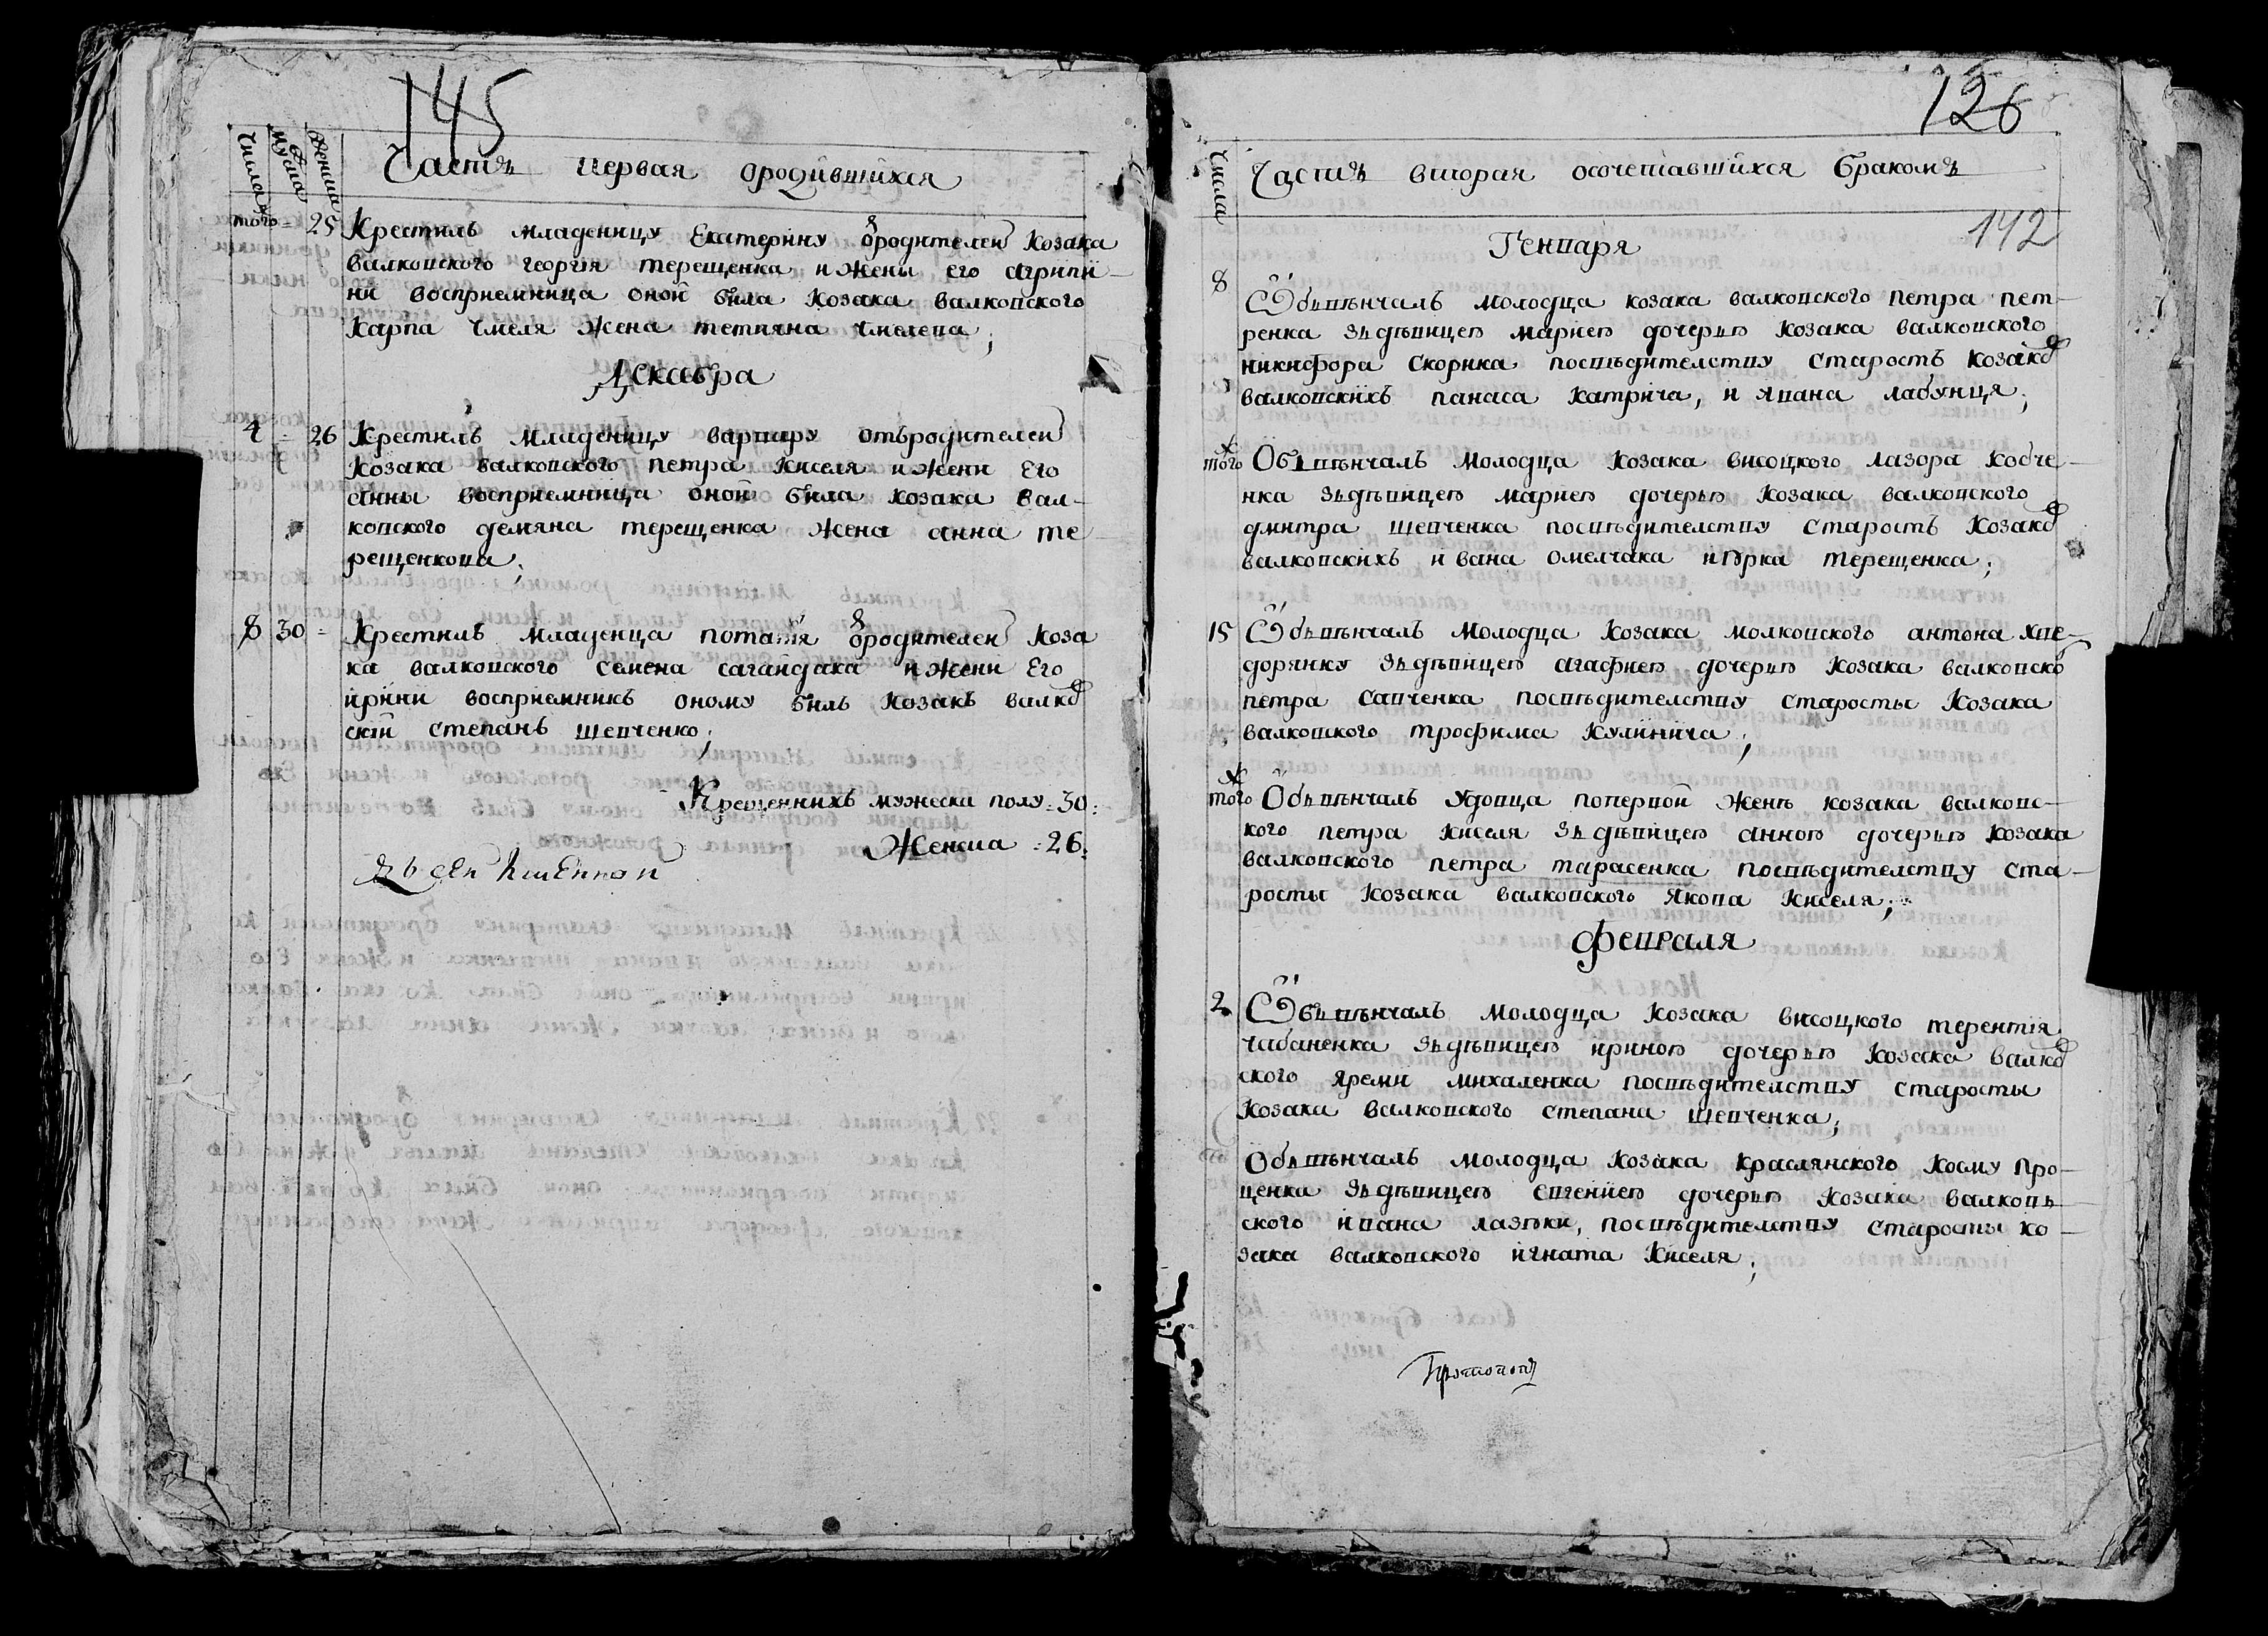 145
Числа мужеска женска Часть первая ородившихся
того = 25 Крестилъ младеницу Екатерину ѿродителей Козака
валковского георгия терещенка и Жены его агрипи-
ни восприемница оной била Козака валковского
Карпа Чмеля Жена тетияна Чмелева;
Декабра
4 = 26 Крестилъ младеницу варвару отъродителей
Козака валковского петра Киселя и Жени Его
анны восприемница оной била Козака вал-
ковского демяна терещенка Жена анна те
рещенкова;
8 30 = Крестилъ младенца потапия ѿродителей Коза
ка валковского семена сагайдака и Жени Его
ирини восприемникъ оному билъ Козакъ валков
скій степанъ шевченко;
Крещеннихъ мужеска полу = 30:
Женска = 26:
126
Числа Часть вторая осочетавшихся бракомъ
142
Генваря
8 Обвѣнчалъ молодца козака валковского петра пет-
ренка зъдѣвицею мариею дочерью Козака валковского
никифора Скорика посвѣдителству старостъ Козаков
валковскихъ панаса Катрича, и Явана лабунця;
того Обвѣнчалъ молодца Козака висоцкого лазора Кобче-
нка зъдѣвицею мариею дочерью Козака валковского
дмитра шевченка посвѣдителству старостъ Козаков
валковскихъ ивана омелчака июрка терещенка;
15 Обвѣнчалъ молодца Козака молковского антона хве-
дорянку зъдѣвицею агафиею дочерью Козака валковско
петра савченка посвѣдителству старосты Козака
валковского трофима Кулинича;
того Обвѣнчалъ Удовца поперной Женѣ козака валковс-
кого петра Киселя зъдѣвицею анною дочерью Козака
валковского петра тарасенка посвѣдителству ста-
росты Козака валковского Якова Киселя;
Февраля
2 Обвѣнчалъ молодца Козака висоцкого терентія
чабаненка зъдѣвицею ириною дочерью Козака валков
ского яреми михаленка посвѣдителству старосты
Козака валковского степана шевченка;
Обвѣнчалъ молодца Козака Краслянского Косму Про-
ценка зъдѣвицею Евгениею дочерью Козака валковь
ского ивана лазѣки, посвѣдителству старосты ко-
зака валковского игната Киселя;
Протопопъ